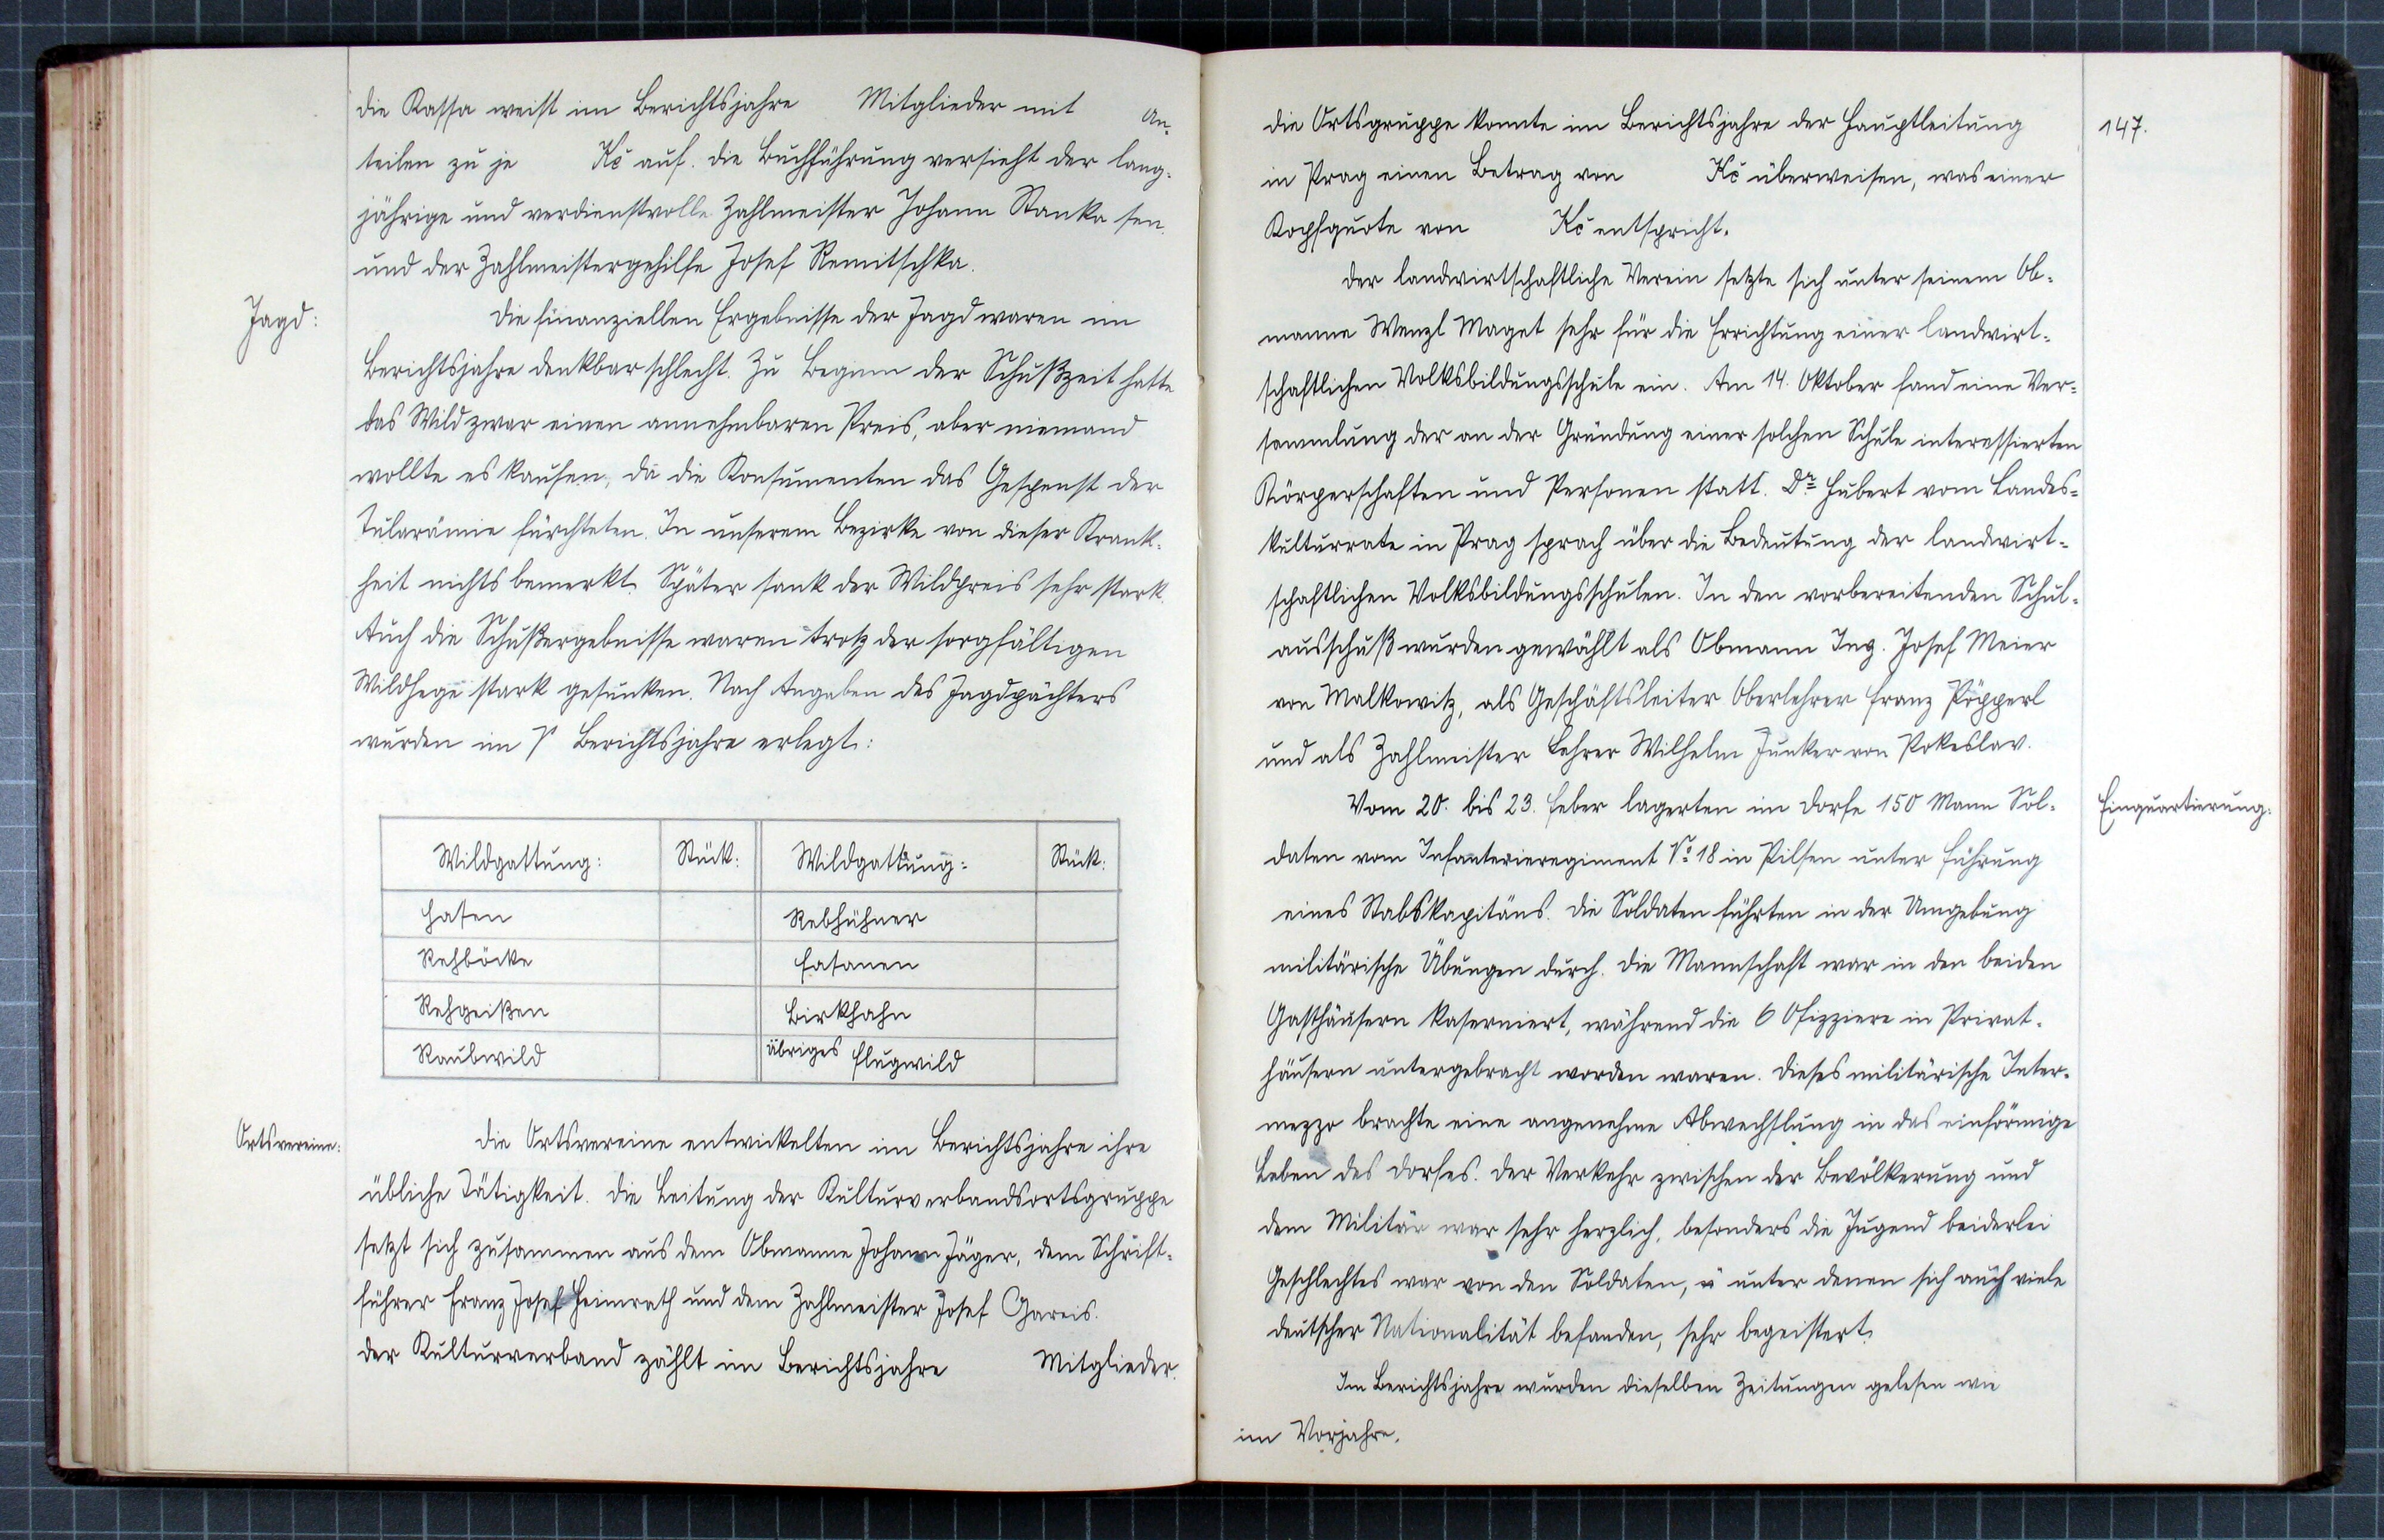 die Kassa weist im Berichtsjahre Mitglieder mit An-
teilen zu je Kč auf. Die Buchführung versieht der lang-
jährige und verdienstvolle Zahlmeister Johann Stanka sen.
und der Zahlmeistergehilfe Josef Remitschka.
Jagd:
Die finanziellen Ergebnisse der Jagd waren im
Berichtsjahre denkbar schlecht. Zu Beginn der Schußzeit hatte
das Wild zwar einen annehmbaren Preis, aber niemand
wollte es kaufen, da die Konsumenten das Gespenst der
Tularämie fürchteten. In unserem Bezirke von dieser Krank-
heit nichts bemerkt. Später sank der Wildpreis sehr stark.
Auch die Schußergebnisse waren trotz der sorgfältigen
Wildhege stark gesunken. Nach Angaben des Jagdpächters
wurden im Berichtsjahre erlegt:
Wildgattung: Stück: Wildgattung: Stück:
Hasen Rebhühner
Rehböcke Fasanen
Rehgeißen Birkhahn
Raubwild übriges Flugwild
Ortsvereine:
Die Ortsvereine entwickelten im Berichtsjahre ihre
übliche Tätigkeit. Die Leitung der Kulturverbandsortsgruppe
setzt sich zusammen aus dem Obmanne Johann Jäger, dem Schrift-
führer Franz Josef Heimrath und dem Zahlmeister Josef Gareis.
Der Kulturverband zählt im Berichtsjahre Mitglieder.
147.
Die Ortsgruppe konnte im Berichtsjahre der Hauptleitung
in Prag einen Betrag von Kč überweisen, was einer
Kopfquote von Kč entspricht.
Der landwirtschaftliche Verein setzte sich unter seinem Ob-
manne Wenzl Maget sehr für die Errichtung einer landwirt-
schaftlichen Volksbildungsschule ein. Am 14. Oktober fand eine Ver-
sammlung der an der Gründung einer solchen Schule interessierten
Körperschaften und Personen statt. Dr Hubert vom Landes-
kulturrate in Prag sprach über die Bedeutung der landwirt-
schaftlichen Volksbildungsschulen. In den vorbereitenden Schul-
ausschuß wurden gewählt als Obmann Ing. Josef Meier
von Malkowitz, als Geschäftsleiter Oberlehrer Franz Pöpperl
und als Zahlmeister Lehrer Wilhelm Junker von Pokeslav.
Einquartierung:
Vom 20. bis 23. Feber lagerten im Dorfe 150 Mann Sol-
daten vom Infanterieregiment No 18 in Pilsen unter Führung
eines Stabskapitäns. Die Soldaten führten in der Umgebung
militärische Übungen durch. Die Mannschaft war in den beiden
Gasthäusern kaserniert, während die 6 Ofizziere in Privat-
häusern untergebracht worden waren. Dieses militärische Inter-
mezzo brachte eine angenehme Abwechslung in das einförmige
Leben des Dorfes. Der Verkehr zwischen der Bevölkerung und
dem Militär war sehr herzlich, besonders die Jugend beiderlei
Geschlechtes war von den Soldaten, unter denen sich auch viele
deutscher Nationalität befanden, sehr begeistert.
Im Berichtsjahre wurden dieselben Zeitungen gelesen wie
im Vorjahre.